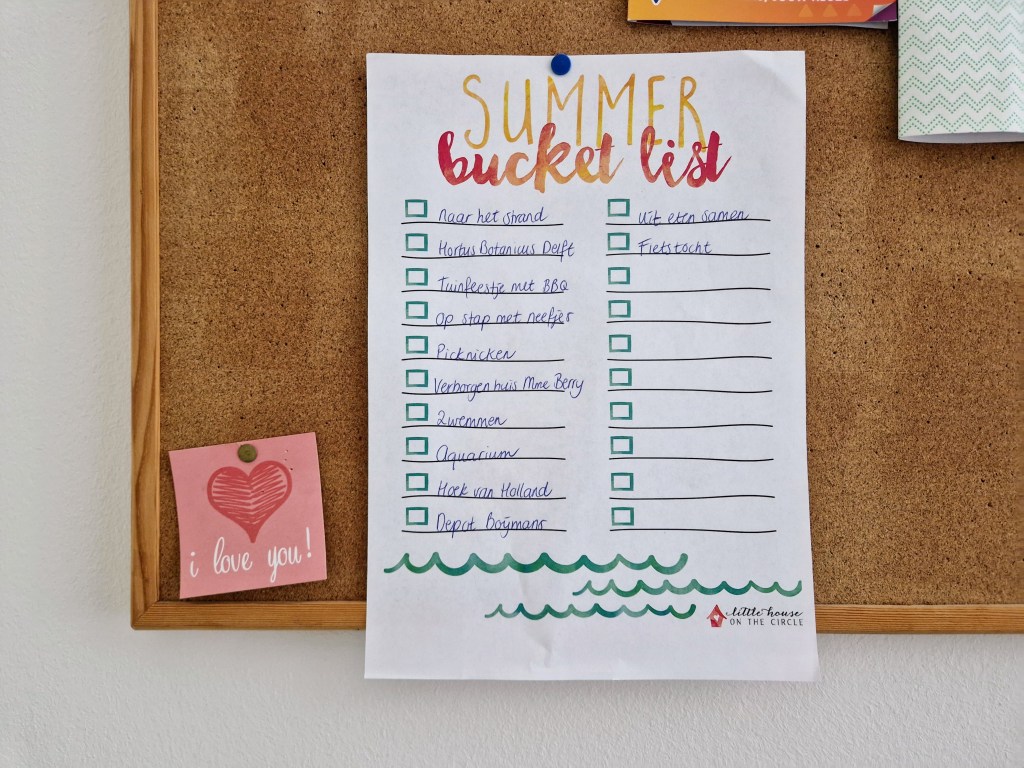 SUMMER
bucket list
Naar het strand
Hortus Botanicus Delft
Tuinfeestje met BBQ
Op stap met neefjes
Picknicken
Verborgen huis Mme Berry
Zwemmen
Aquarium
Hoek van Holland
Depot Boijmans
Uit eten samen
Fietstocht
little house
ON THE CIRCLE
i love you!